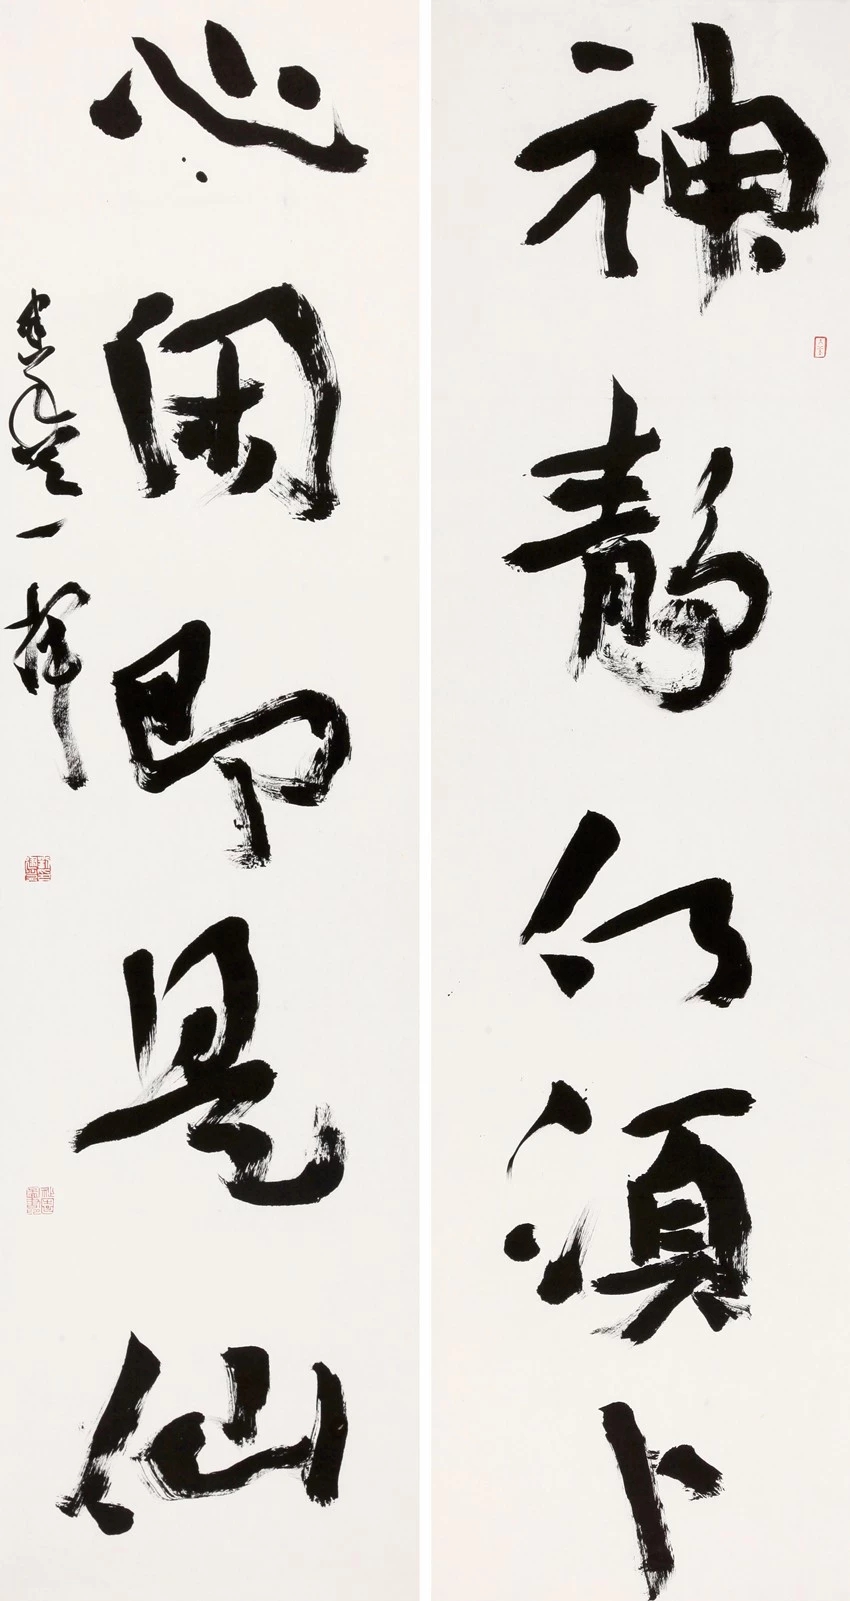 神靜何須卜
心閑即是仙
一揮